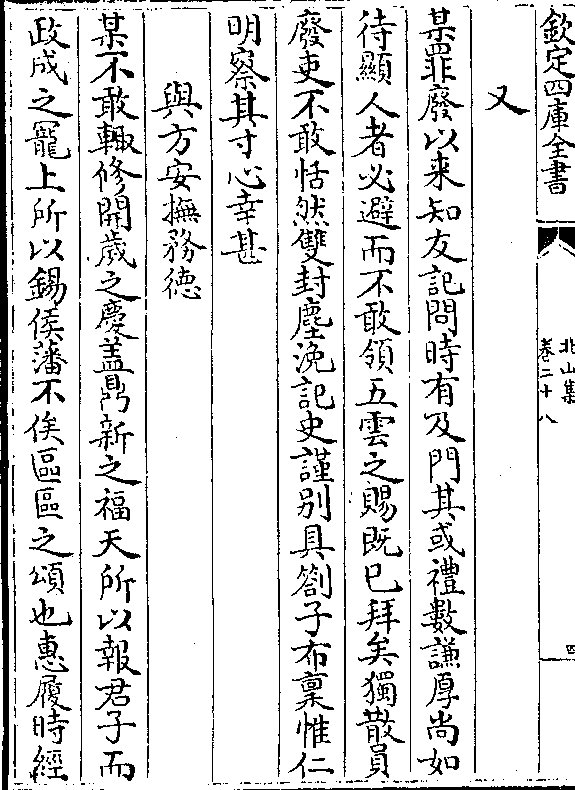 欽定四庫全書
北山集
卷二十八
四
又
某罪廢以来知友記問時有及門其或禮數謙厚尚如
待顯人者必避而不敢領五雲之賜既已拜矣獨散員
廢吏不敢恬然雙封塵浼記史謹别具劄子布稟惟仁
明察其寸心幸甚
與方安撫務徳
某不敢輙修開歲之慶蓋鼎新之福天所以報君子而
政成之寵上所以錫侯藩不俟區區之頌也惠履時經